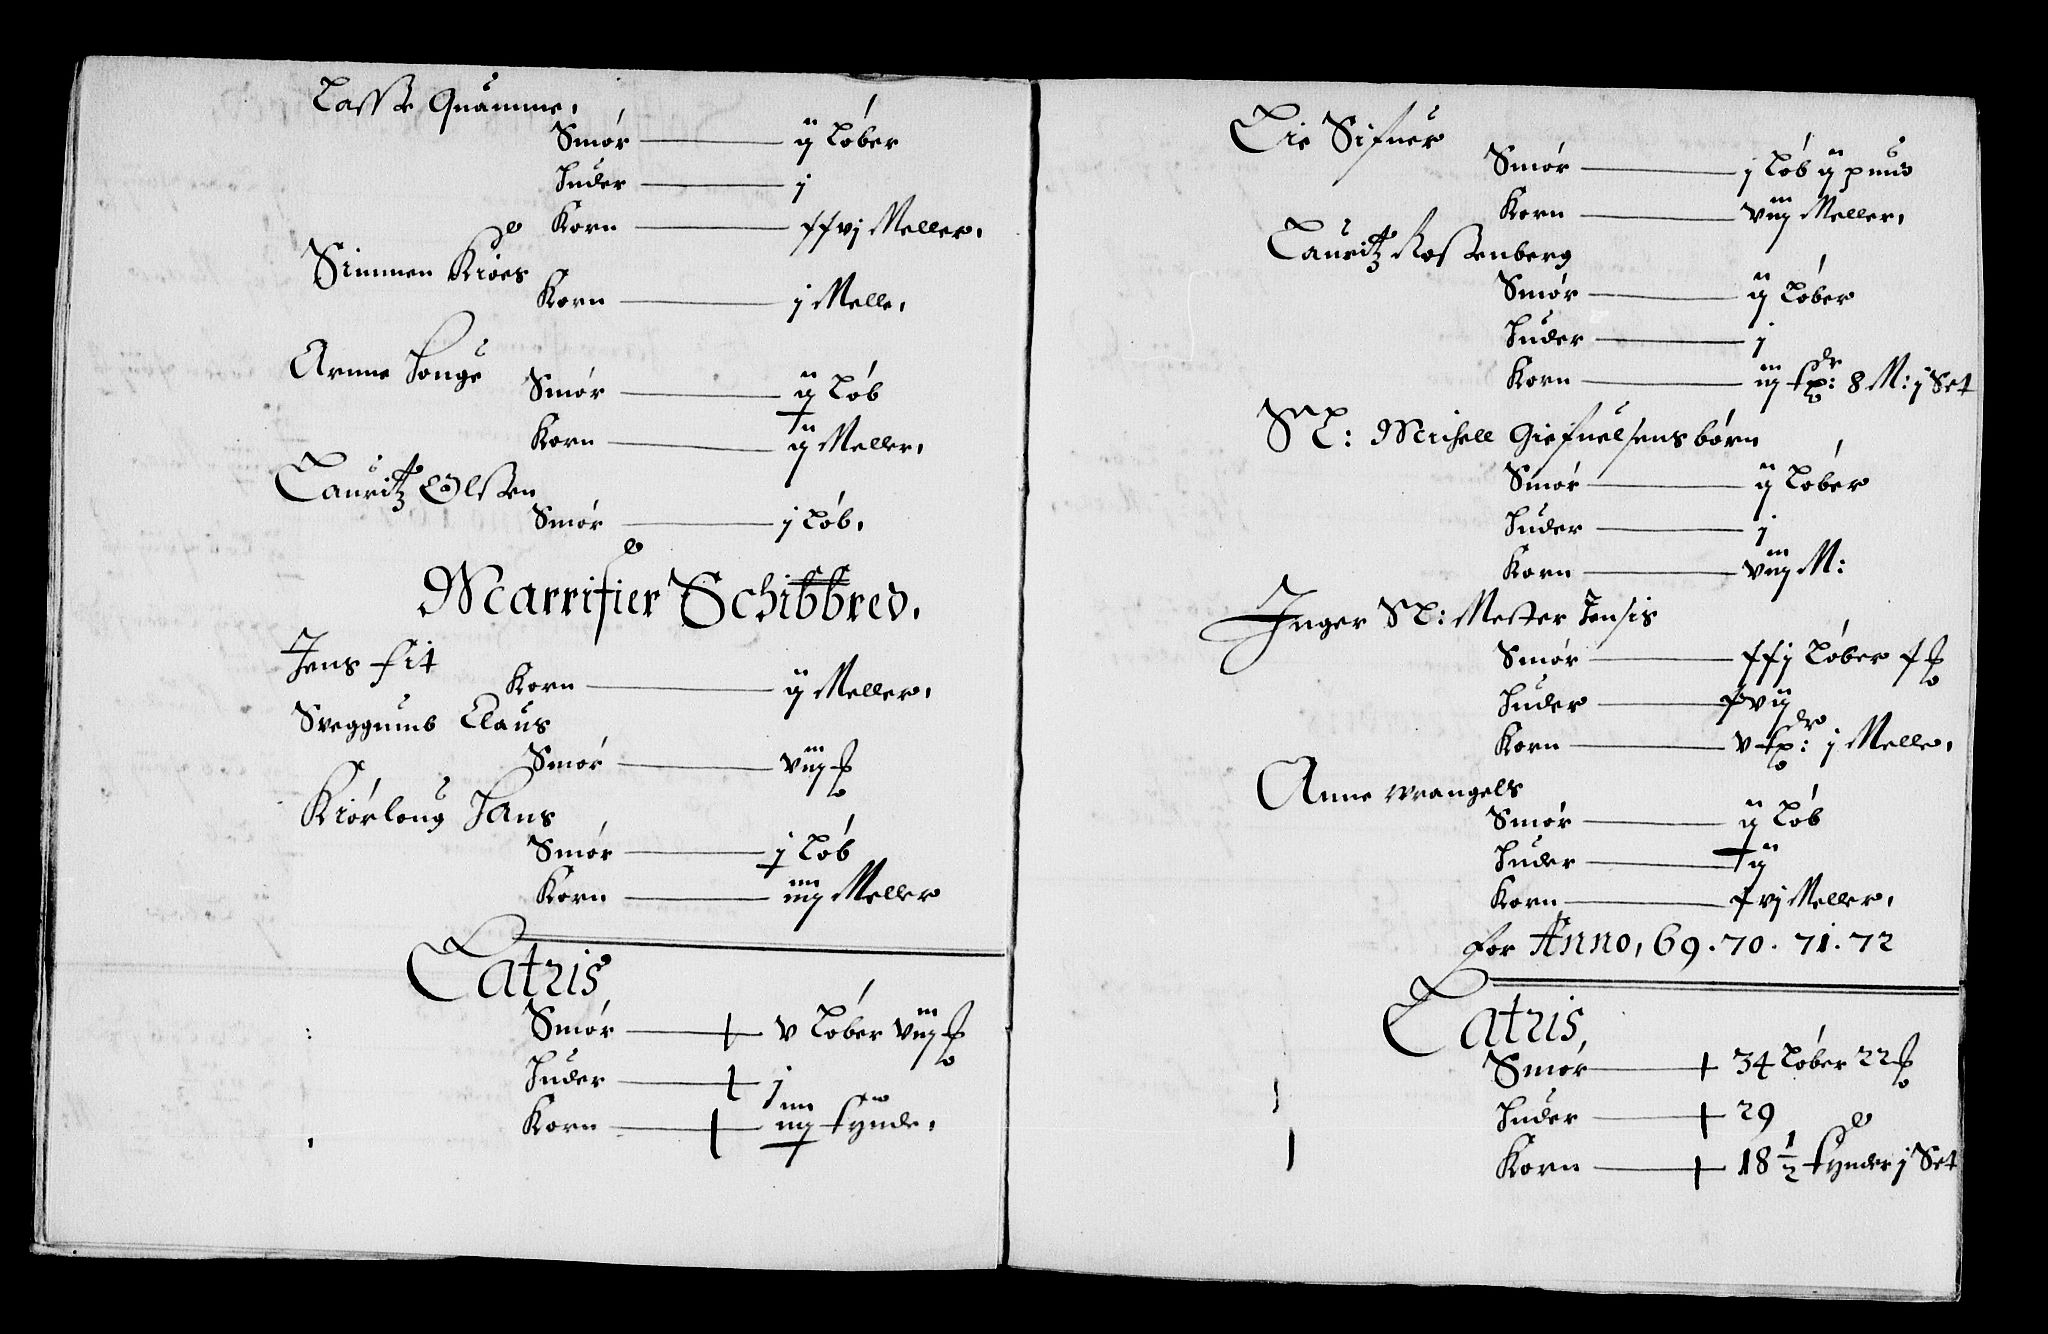 Lasse Quamme,
Smør — ij Løber
Huder — j
Korn — xxvj Meller,
Simmen Kiøes
Korn — j Melle,
Arnne Houge
Smør — ij Løb
Korn — ij Meller,
Lauritz Olssen
Smør — j Løb,
Marrifier Schibbred,
Jens Fit
Korn — ij Meller,
Sveggumb Claus
Smør — viij ℔
Kiørloug Hans
Smør — j Løb
Korn — iiij Meller
Latris
Smør — v Løber viij ℔
Huder — j
Korn — iiij tynde,
Eie Sifuer
Smør — j Løb ij pund
Korn — viij Meller,
Lauritz Rossenberg
Smør — ij Løber
Huder — j
Korn — iij 8 M: j Set
Sl: Michell Giefuelsens børn
Smør — ij Løber
Huder — j
Korn — viij M:
Inger Sl: Mester Jensis
Smør — xxj Løber x ℔
Huder — xvij
Korn — v j Melle,
Anne Wrangels
Smør — ij Løb
Huder — ij
Korn — xvj Meller,
for Anno, 69. 70. 71. 72
Latris,
Smør — 34 Løber 22 ℔
Huder — 29
Korn — 18 1/2 tynder j Set